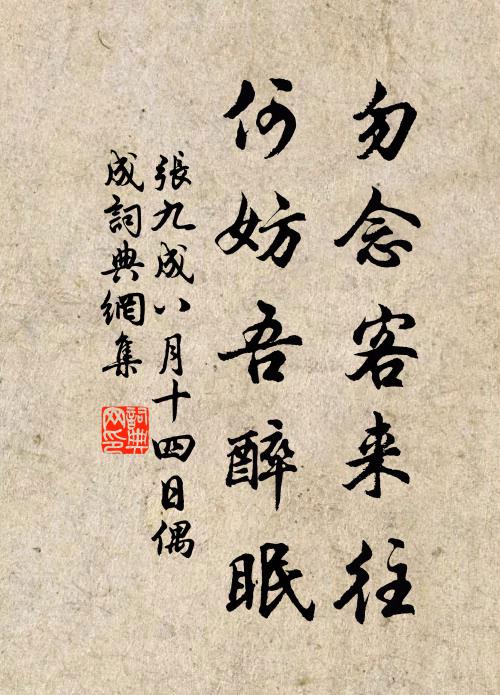 勿念客来往
何妨吾醉眠
張九成八月十四日偶
成詞典網集
詞典网印